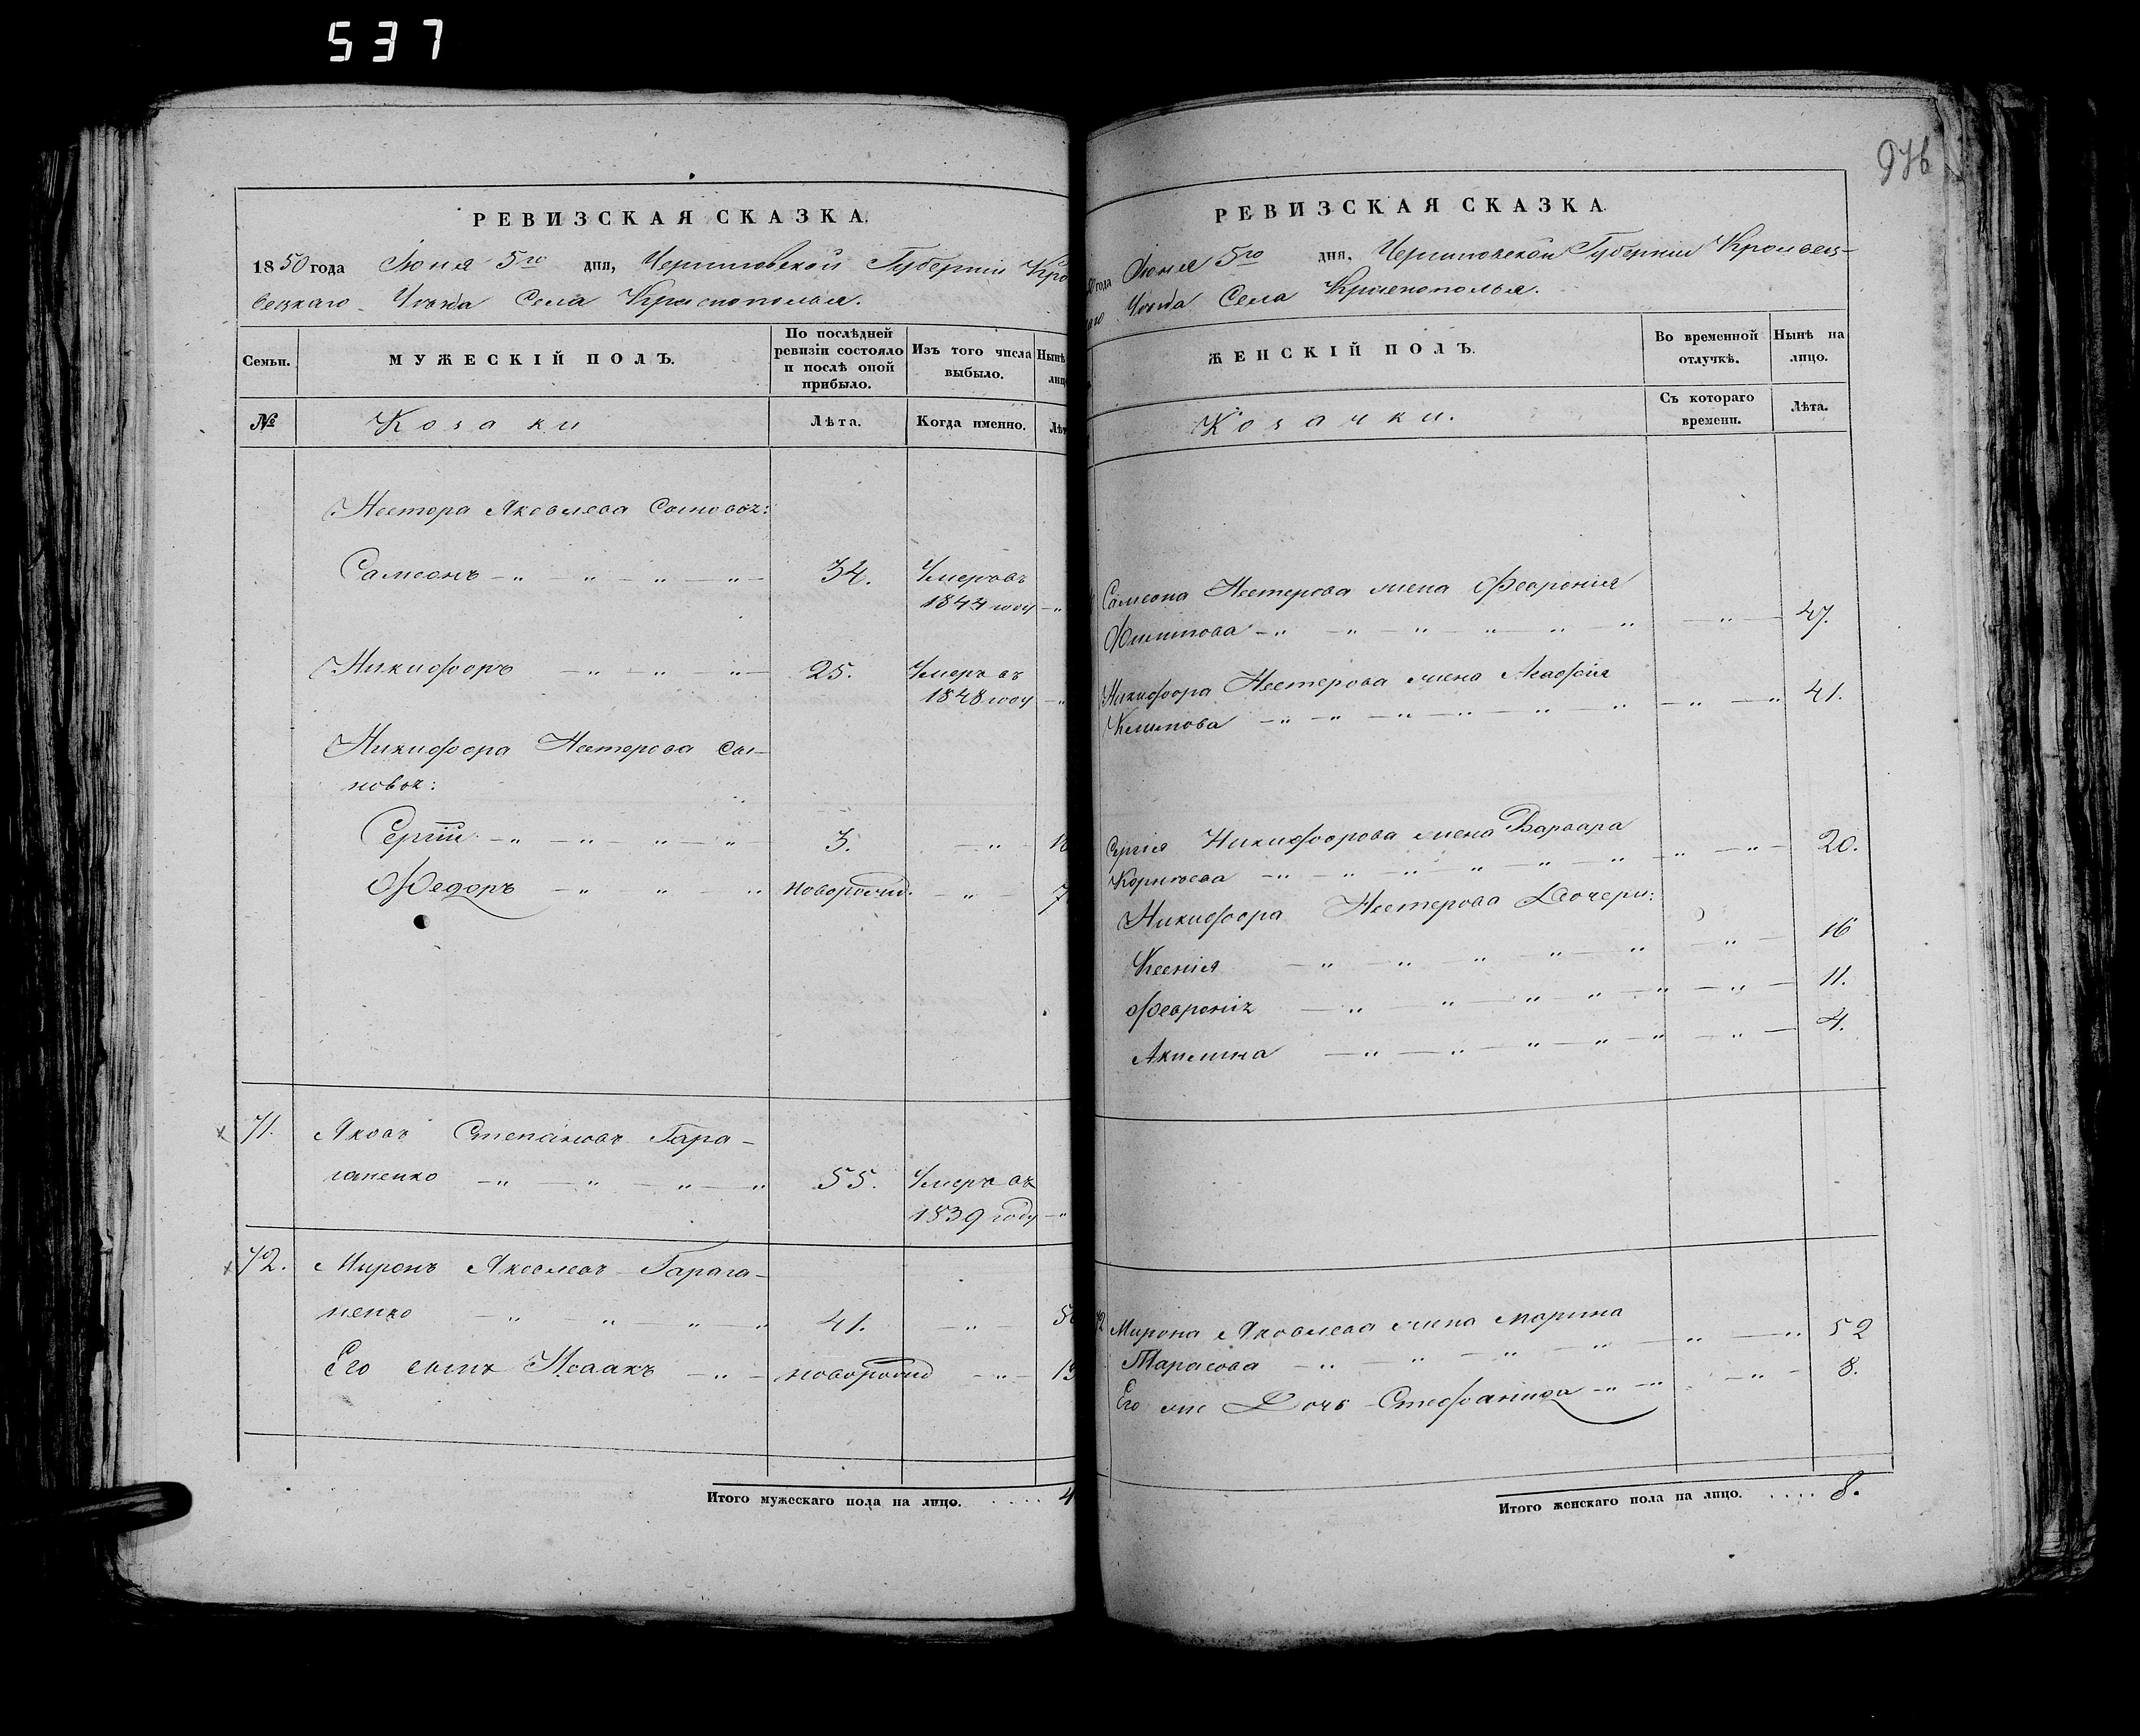 537
976
РЕВИЗСКАЯ СКАЗКА.
1850 года Июня 5го дня, Черниговской Губерніи Кро
вецкаго Уѣзда Села Краснополья.
Семьи.
МУЖЕСКІЙ ПОЛЪ.
По послѣдней
ревизіи состояло
и послѣ оной
прибыло.
Изъ того числа
выбыло.
Нынѣ
лиц
№
Козаки
Лѣта.
Когда именно.
Лѣт
Нестора Яковлева Сыновья:
Самсонъ 34. Умеръ въ
1844 году
Никифоръ 25. Умеръ въ
1848 году
Никифора Нестерова сы-
новья:
Сергій 3.
Федоръ новорожд.
71. Яковъ Степановъ Гара-
ганенко 55. Умеръ въ
1839 году
72. Миронъ Яковлевъ Гарага-
ненко 41.
Его сынъ Исаакъ новорожд
Итого мужескаго пола на лицо. 4
РЕВИЗСКАЯ СКАЗКА.
года Июня 5го дня, Черниговской Губерніи Кролевец-
аго Уѣзда Села Краснополья.
ЖЕНСКІЙ ПОЛЪ.
Во временной
отлучкѣ.
Нынѣ на
лицо.
Козачки.
Съ котораго
времени.
Лѣта.
Самсона Нестерова жена Февронія
Филипова 47.
Никифора Нестерова жена Агафія
Климова 41.
Сергія Никифорова жена Варвара
Корнѣева 20.
Никифора Нестерова Дочери:
Ксенія 16
Февронія 11.
Акилина 4.
72 Мирона Яковлева жена Марина
Тарасова 52
Его же Дочь Стефанида 8.
Итого женскаго пола на лицо. 8.